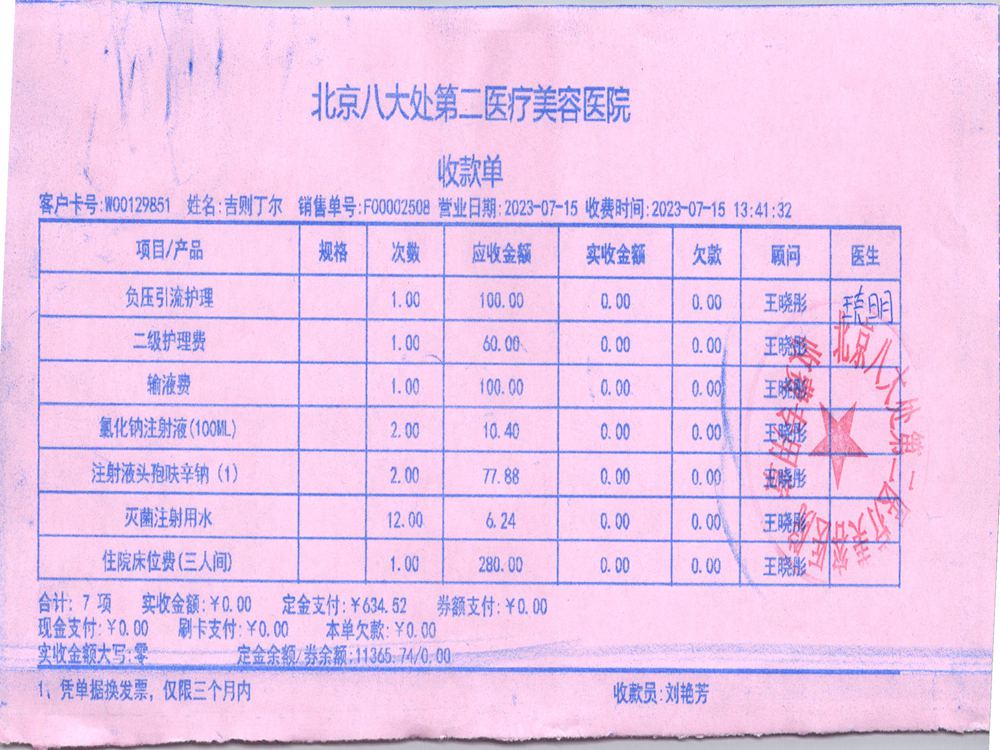 北京八大处第二医疗美容医院
收款单
客户卡号:W00129851 姓名:吉则丁尔 销售单号:F00002508 营业日期:2023-07-15 收费时间:2023-07-15 13:41:32
项目/产品 规格 次数 应收金额 实收金额 欠款 顾问 医生
负压引流护理 1.00 100.00 0.00 0.00 王晓彤
二级护理费 1.00 60.00 0.00 0.00 王晓彤
输液费 1.00 100.00 0.00 0.00 王晓彤
氯化钠注射液(100ML) 2.00 10.40 0.00 0.00 王晓彤
注射液头孢呋辛钠(1) 2.00 77.88 0.00 0.00 王晓彤
灭菌注射用水 12.00 6.24 0.00 0.00 王晓彤
住院床位费(三人间) 1.00 280.00 0.00 0.00 王晓彤
北京八大处第二医疗美容医院
收费专用章
合计: 7 项 实收金额:¥0.00 定金支付:¥634.52 券额支付:¥0.00
现金支付:¥0.00 刷卡支付:¥0.00 本单欠款:¥0.00
实收金额大写:零 定金余额/券余额:11365.74/0.00
1、凭单据换发票，仅限三个月内 收款员:刘艳芳